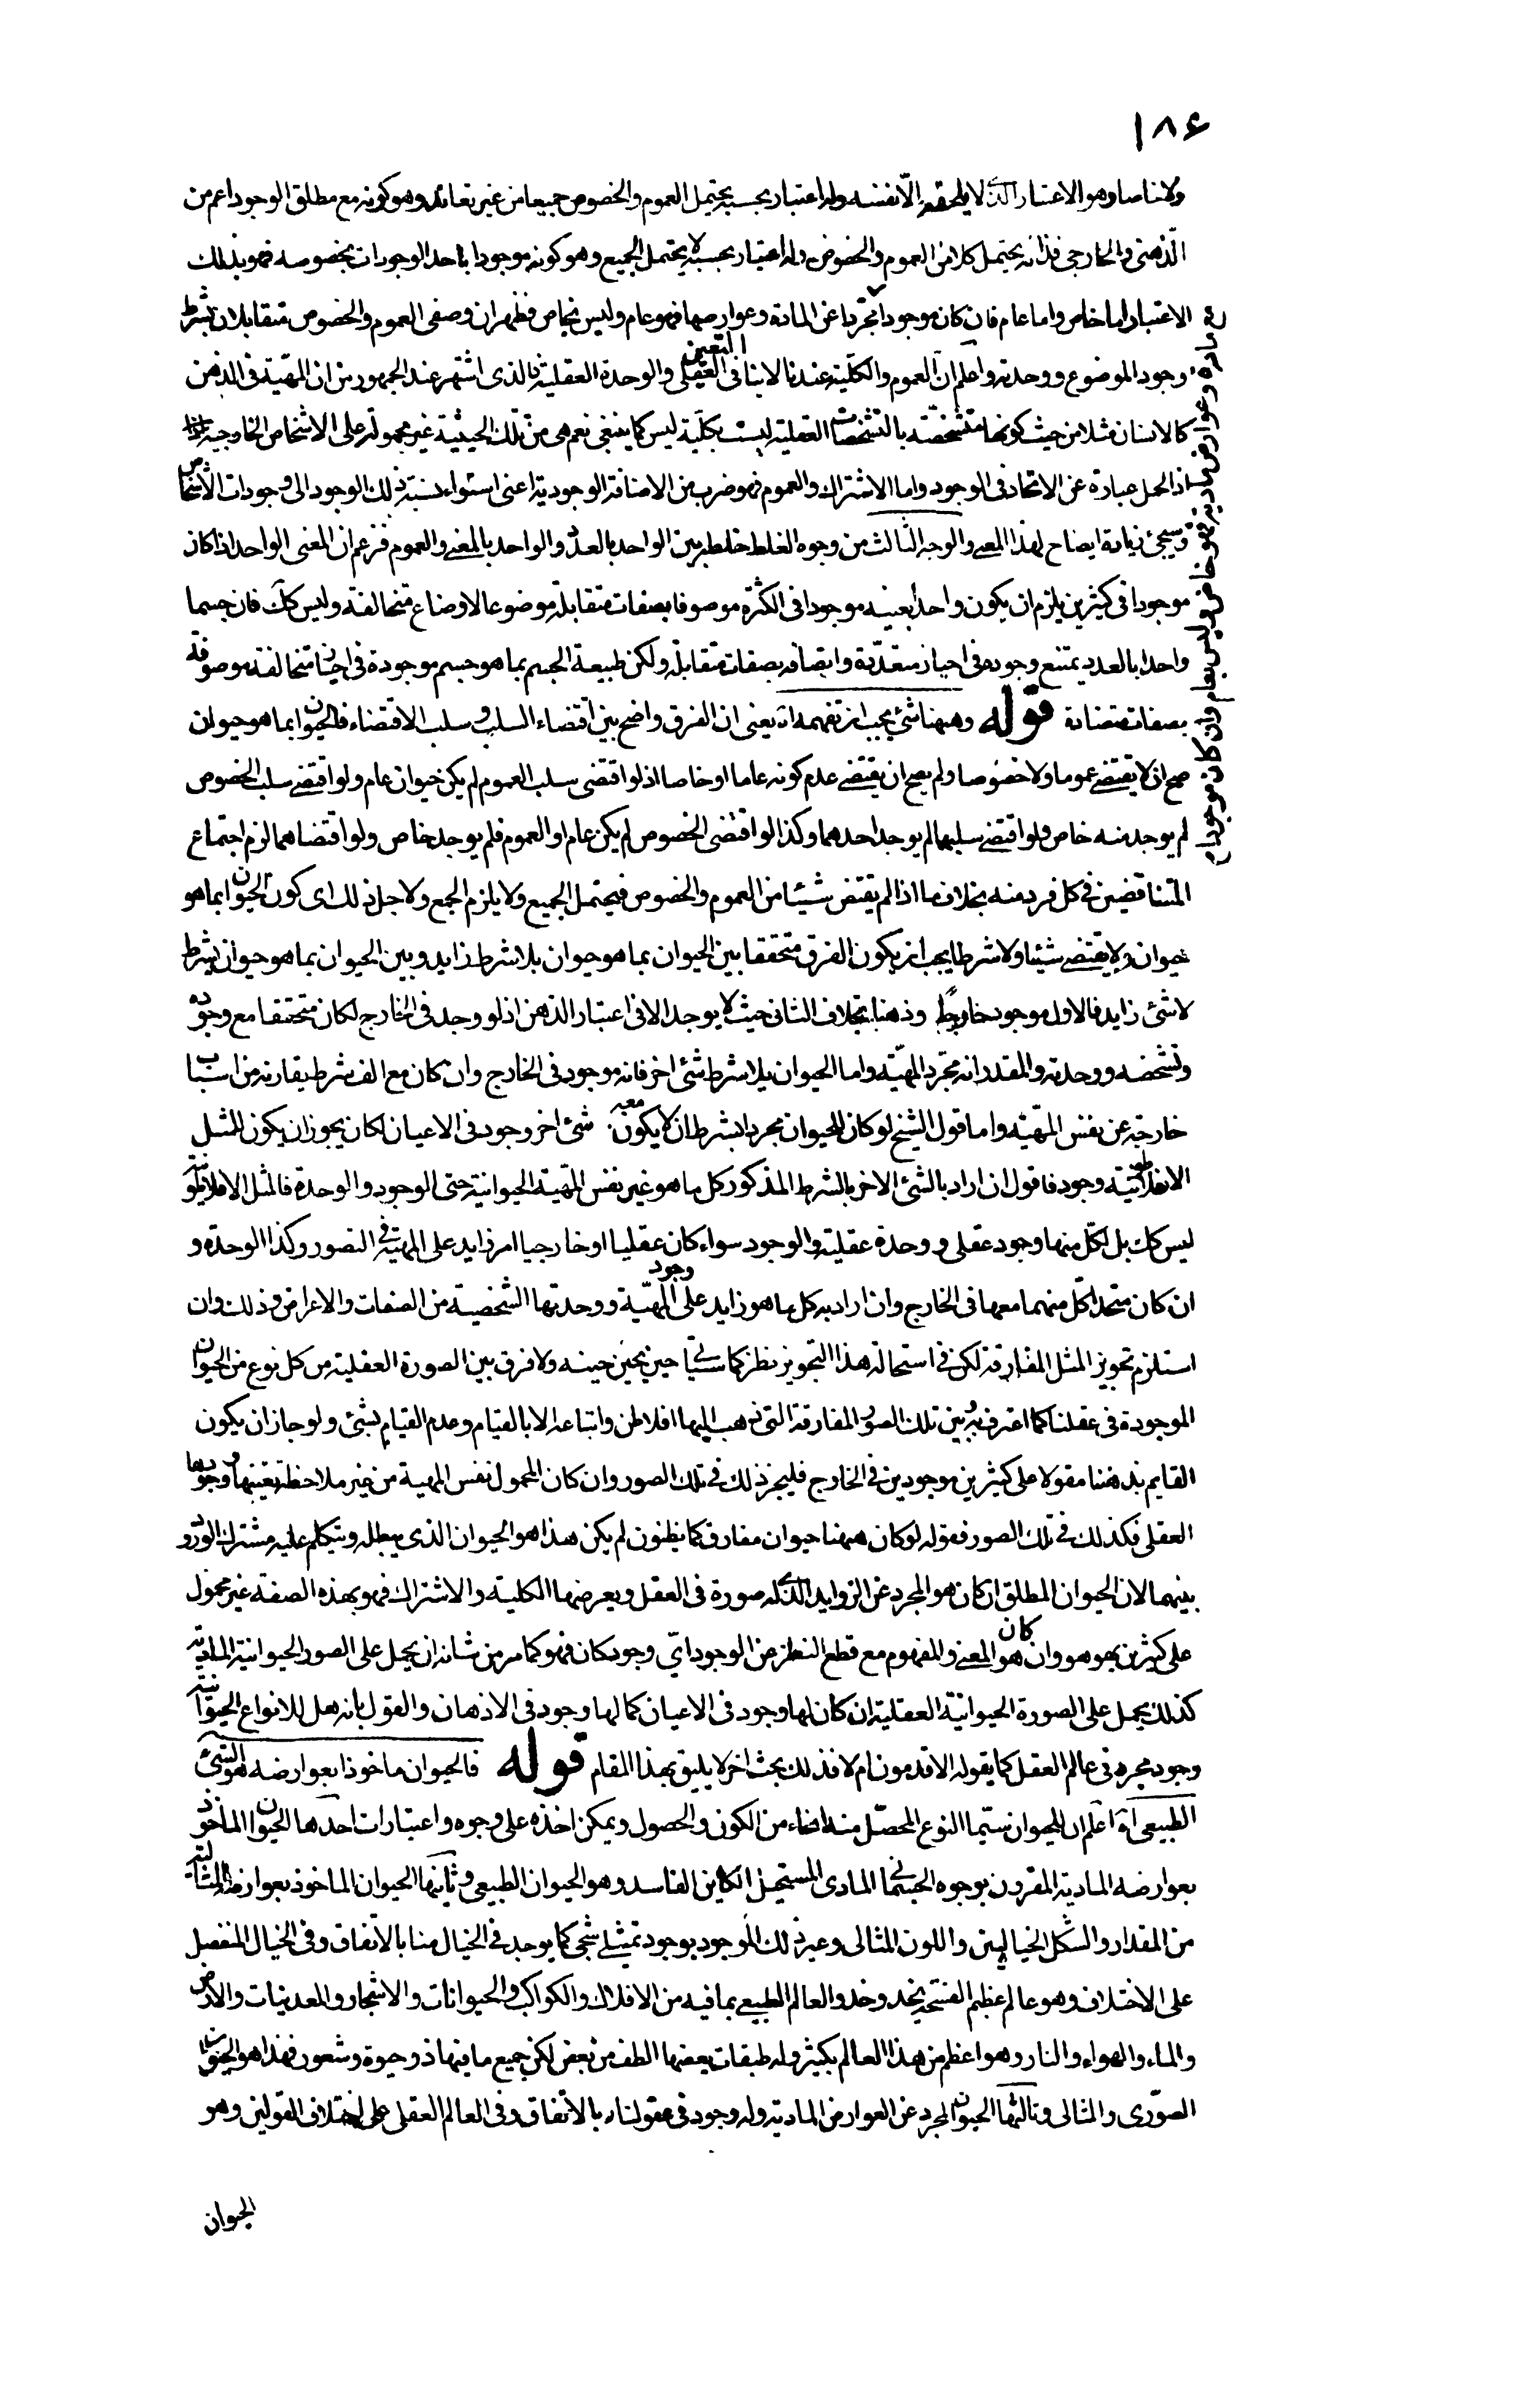 ١٨۶
ولا خاصا وهو الاعتبار الذی لا يلحقه الّا نفسه وله اعتبار بحسبه يحتمل العموم والخصوص جميعا من غير تعاند وهو كونه مع مطلق الوجود اعم من
الذهنى والخارجى فذاته يحتمل كلا من العموم والخصوص وله اعتبار بحسبه لا يحتمل الجميع وهو كونه موجودا باحد الوجودات بخصوصه فهو بذلك
الاعتبار اما خاص واما عام فان كان موجودا مجردا عن المادة وعوارضها فهو عام وليس بخاص فظهر ان وصفى العموم والخصوص متقابلان بشرط
وجود الموضوع ووحدته واعلم ان العموم والكلية عندنا لا ينافى التعين العقلى والوحدة العقلية فالذى اشتهر عند الجمهور من ان المهية فى الذهن
كالانسان مثلا من حيث كونها متشخصة بالتشخصات العقلية ليست بكلية ليس كما ينبغى نعم هى من تلك الحيثية غير محمولة على الاشخاص الخارجية
اذ الحمل عبارة عن الاتحاد فى الوجود واما الاشتراك والعموم فهو ضرب من الاضافة الوجودية اعنى استواء نسبة ذلك الوجود الى وجودات الاشخاص
وسيجئ زيادة ايضاح لهذا المعنى والوجه الثالث من وجوه الغلط خلطه بين الواحد بالعدد والواحد بالمعنى والعموم فزعم ان المعنى الواحد اذا كان
موجودا فى كثيرين يلزم ان يكون واحد بعينه موجودا فى الكثرة موصوفا بصفات متقابلة موضوعا لاوضاع متخالفة وليس كك فان جسما
واحدا بالعدد يمتنع وجوده فى احياز متعددة واتصافه بصفات متقابلة ولكن طبيعة الجسم بما هو جسم موجودة فى احياز متخالفة موصوفة
بصفات متضادة قوله وههنا شئ يجب ان تفهمه اه يعنى ان الفرق واضح بين اقتضاء السلب وسلب الاقتضاء فالحيوان بما هو حيوان
صح ان لا يقتضى عموما ولا خصوصا ولم يصح ان يقتضى عدم كونه عاما او خاصا اذ لو اقتضى سلب العموم لم يكن حيوان عام ولو اقتضى سلب الخصوص
لم يوجد منه خاص ولو اقتضى سلبهما لم يوجد احدهما وكذا لو اقتضى الخصوص لم يكن عام او العموم فلم يوجد خاص ولو اقتضاهما لزم اجتماع
المتناقضين فى كل فرد منه بخلاف ما اذا لم يقتض شيئا من العموم والخصوص فيحتمل الجميع ولا يلزم الجمع ولاجل ذلك اى كون الحيوان بما هو
حيوان لا يقتضى شيئا ولا شرطا يجب ان يكون الفرق متحققا بين الحيوان بما هو حيوان بلا شرط زايد وبين الحيوان بما هو حيوان بشرط
لا شئ زايد فالاول موجود خارجا وذهنا بخلاف الثانى حيث لا يوجد الا فى اعتبار الذهن اذ لو وجد فى الخارج لكان متحققا مع وجوده
وتشخصه ووحدته والمقدر انه مجرد المهية واما الحيوان بلا شرط شئ اخر فانه موجود فى الخارج وان كان مع الف شرط يقارنه من اسباب
خارجة عن نفس المهية واما قول الشيخ لو كان للحيوان مجردا بشرط ان لا يكون معه شئ اخر وجود فى الاعيان لكان يجوز ان يكون للمثل
الافلاطونية وجود فاقول ان اراد بالشئ الاخر بالشرط المذكور كل ما هو غير نفس المهية الحيوانية حتى الوجود والوحدة فالمثل الافلاطونية
ليس كك بل لكل منها وجود عقلى ووحدة عقلية والوجود سواء كان عقليا او خارجيا امر زايد على المهية فى التصور وكذا الوحدة و
ان كان متحدا كل منهما معها فى الخارج وان اراد به كل ما هو زايد على وجود المهية ووحدتها الشخصية من الصفات والاعراض فذلك وان
استلزم تجويز المثل المفارقة لكن فى استحالة هذا التجويز نظر كما سيأتى حين يحين حينه ولا فرق بين الصورة العقلية من كل نوع من الحيوان
الموجودة فى عقلنا كما اعترف به وبين تلك الصور المفارقة التى ذهب اليها افلاطن واتباعه الا بالقيام وعدم القيام بشئ ولو جاز ان يكون
القايم بذهننا مقولا على كثيرين موجودين فى الخارج فليجز ذلك فى تلك الصور وان كان المحمول نفس المهية من غير ملاحظة تعينها ووجودها
العقلى فكذلك فى تلك الصور فقوله لو كان ههنا حيوان مفارق كما يظنون لم يكن هذا هو الحيوان الذى يطلبه ويتكلم عليه مشترك الورود
بينهما لان الحيوان المطلق ان كان هو المجرد عن الزوايد الذى له صورة فى العقل ويعرضها الكلية والاشتراك فهو بهذه الصفة غير محمول
على كثيرين بهو هو وان كان هو المعنى والمفهوم مع قطع النظر عن الوجود اى وجود كان فهو كما مر من شانه ان يحمل على الصور الحيوانية المادية
كذلك يحمل على الصورة الحيوانية العقلية ان كان لها وجود فى الاعيان كما لها وجود فى الاذهان والقول بانه هل للانواع الحيوانية
وجود مجرد فى عالم العقل كما يقوله الاقدمون ام لا فذلك بحث اخر لا يليق بهذا المقام قوله فالحيوان ماخوذا بعوارضه هو الشئ
الطبيعى اه اعلم ان للحيوان سيما النوع المحصل منه انحاء من الكون والحصول ويمكن اخذه على وجوه واعتبارات احدها الحيوان الماخوذ
بعوارضه المادية المقرون بوجوه الجسمانى المادى المستحيل الكاين الفاسد وهو الحيوان الطبيعى وثانيها الحيوان الماخوذ بعوارضه المثالية
من المقدار والشكل الخياليين واللون المثالى وغير ذلك الموجود بوجود تمثيلى شبحى كما يوجد فى الخيال منا بالاتفاق وفى الخيال المنفصل
على الاختلاف وهو عالم عظيم الفسحة يحذو حذو العالم الطبيعى بما فيه من الافلاك والكواكب والحيوانات والاشجار والمعدنيات والارض
والماء والهواء والنار وهو اعظم من هذا العالم بكثير وله طبقات بعضها الطف من بعض لكن جميع ما فيها ذو حيوة وشعور فهذا هو الحيوان
الصورى والمثالى وثالثها الحيوان المجرد عن العوارض المادية وله وجود فى عقولنا بالاتفاق وفى العالم العقلى على اختلاف القولين وهو
الحيوان
فى مادة وعوارض مادية فهو خاص وليس بعام وان كان موجودا